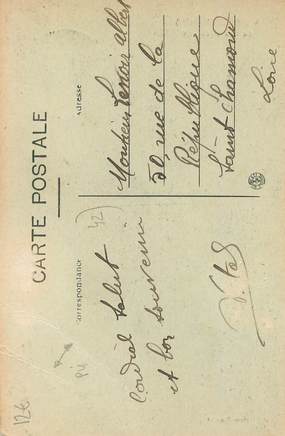 CARTE POSTALE
Correspondance
Adresse
Cordial salut
et bon souvenir
Monsieur Lenoir Albert
rue de la
République
Saint Chamond
Loire
42
12€